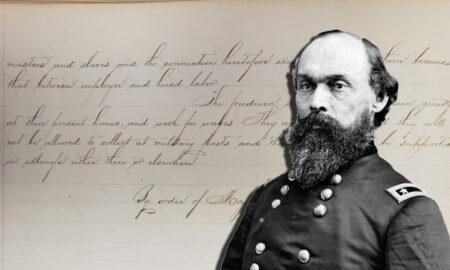 masters and slaves and the connection heretofore becomes
that between employer and hired labor.
The freedmen
at their present homes, and work for wages. They they will
not be allowed to collect at military posts and
in idleness either there or elsewhere
By order of Maj